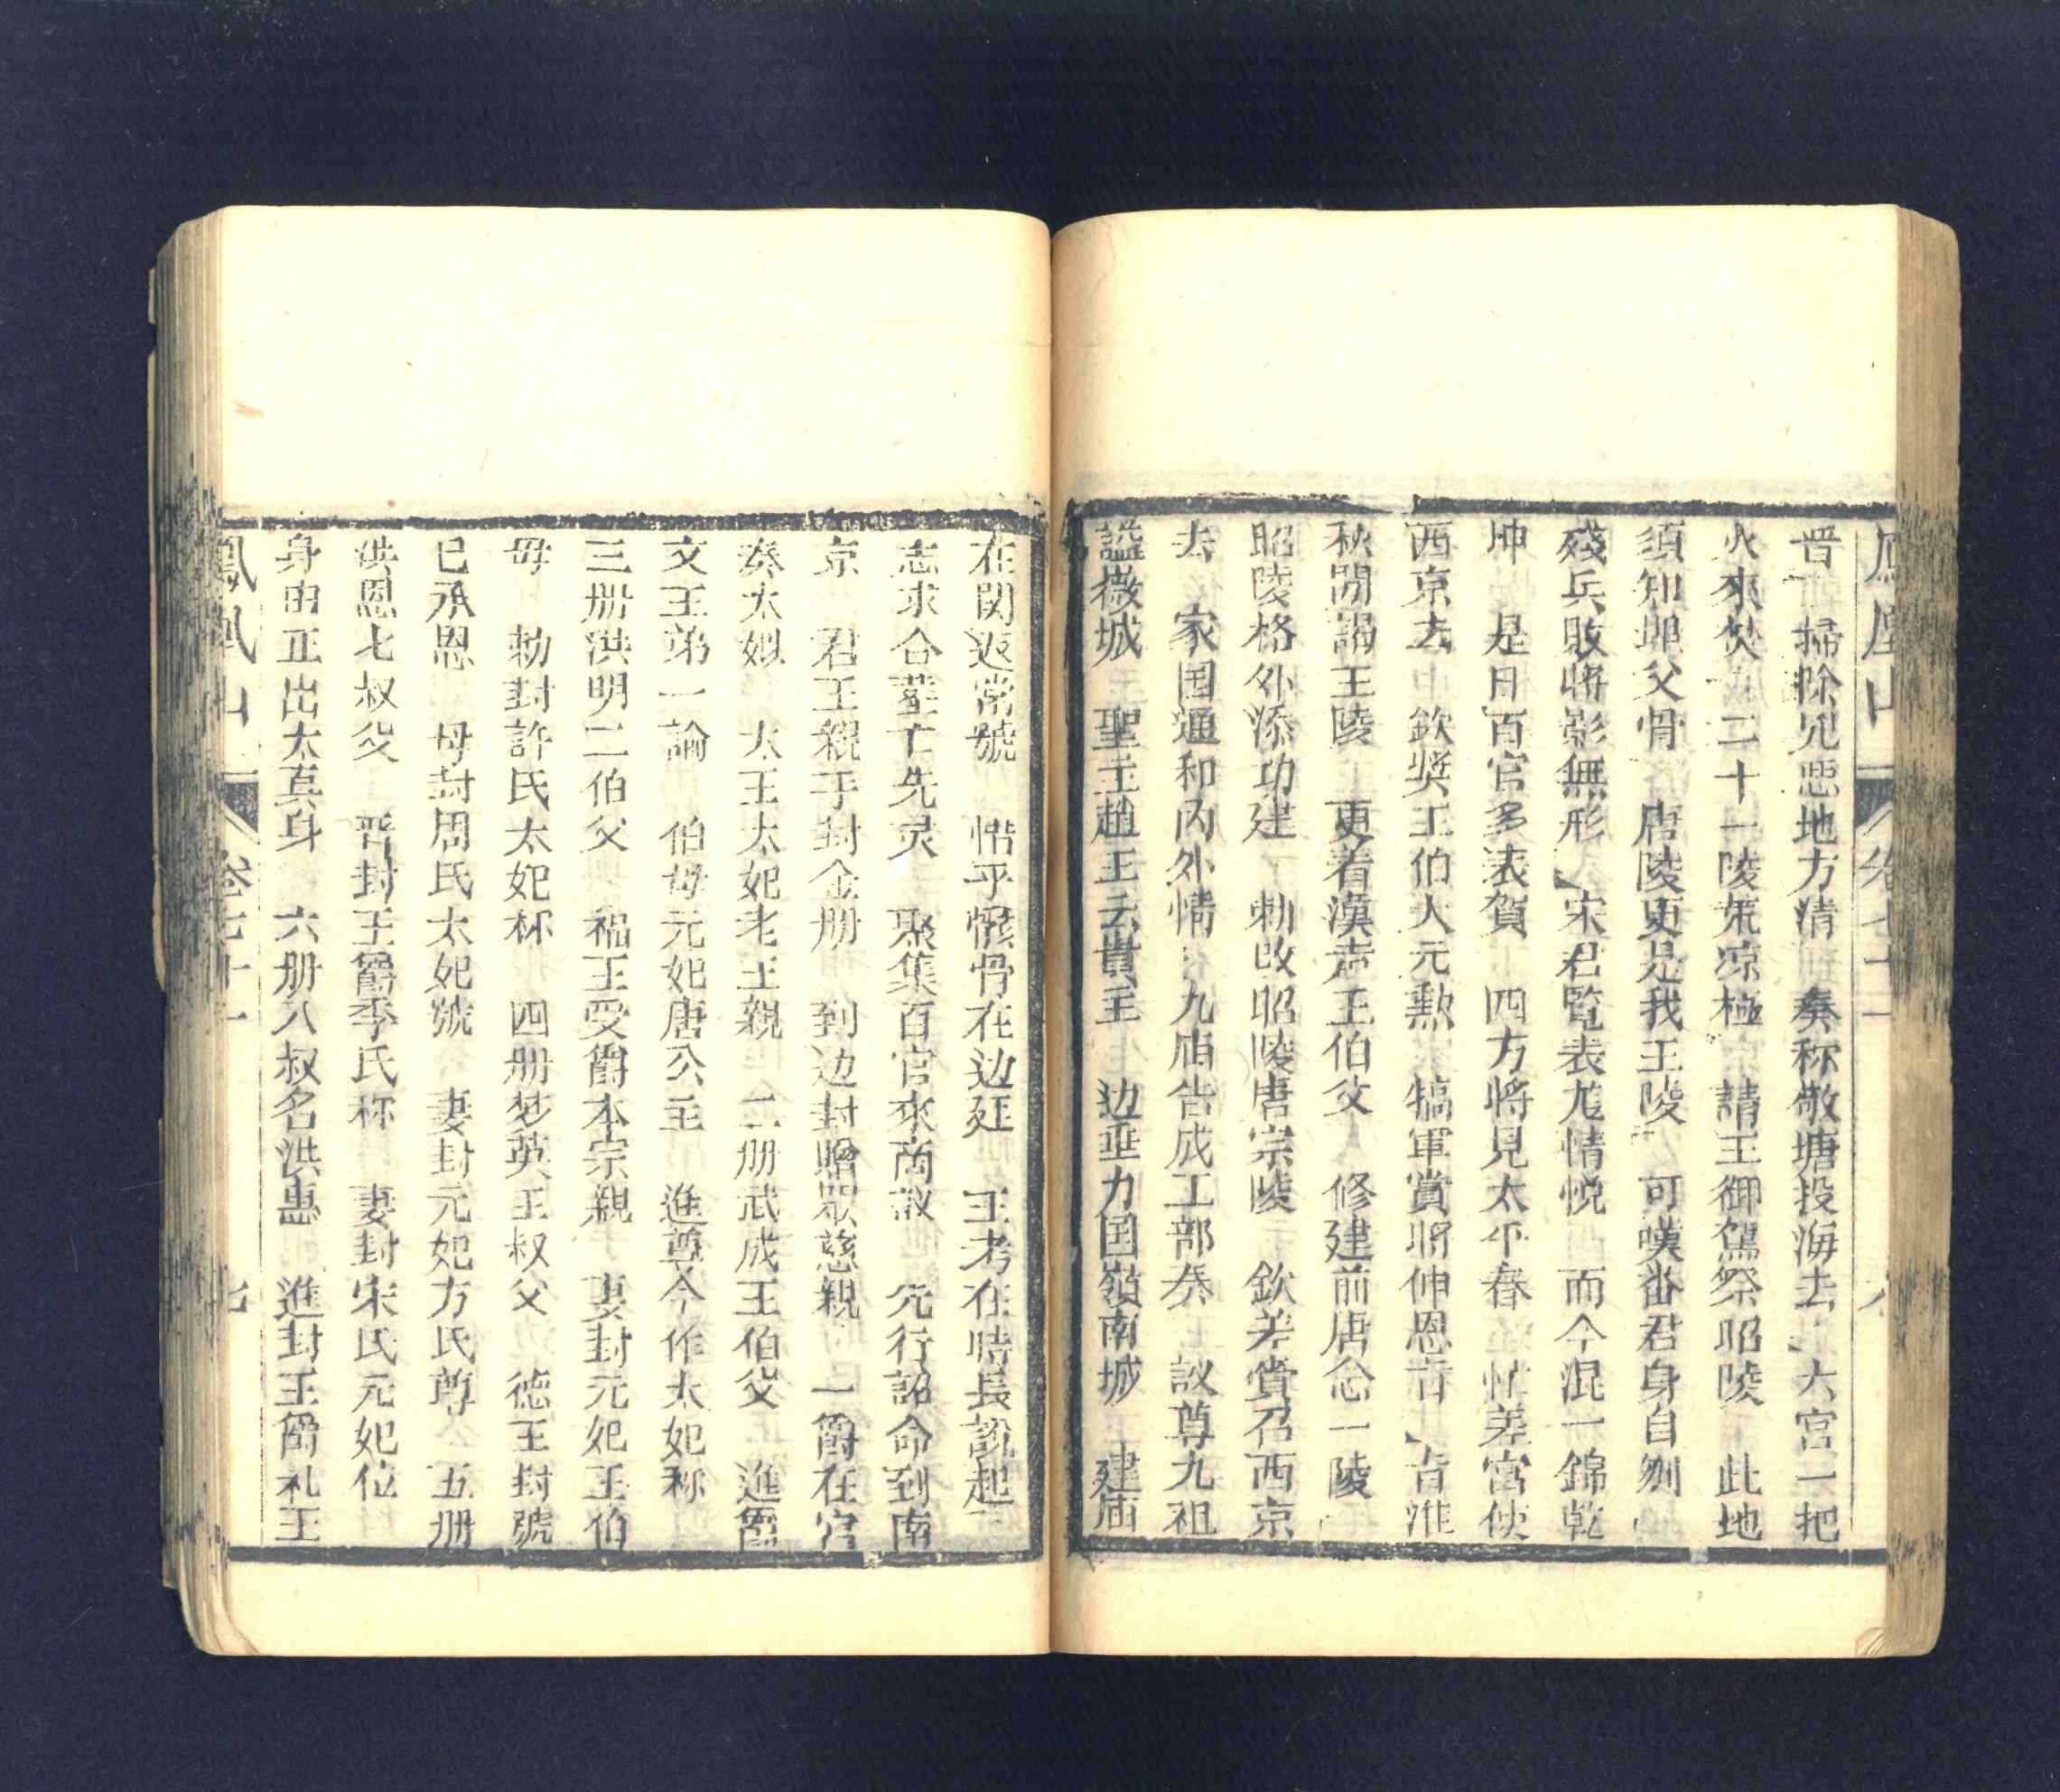 鳳凰山 卷七十一
晋 掃除児惡地方清 奏称敬塘投海去 大宫一把
火來焚 二十一陵荒凉極 請王御駕祭昭陵 此地
須知埋父骨 唐陵更是我王陵 可嘆畨君身自刎
殘兵敗將影無形 宋君覧表尨情悦 而今混一錦乾
坤 是日百官多表賀 四方將見太平春 忙差宫使
西京去 欽奨王伯大元勲 犒軍賞將伸恩旨 旨准
秋間謁王陵 更着漢老王伯父 修建前唐念一陵
昭陵格外添功建 勅改昭陵唐宗陵 欽差賞召西京
去 家国通和内外情 九庙告成工部奏 議尊九祖
謚徽城 聖王趙王云貴王 边垂力国嶺南城 建庙
在関返常號 惜乎骸骨在边廷 王考在時長説起
志求合塟亡先灵 聚集百官來啇議 先行詔命到南
京 君王親手封金册 到边封贈眾慈親 一爵在官
奏太姒 太王太妃老王親 二册武成王伯父 進爵
文王弟一論 伯母元妃唐公主 進尊今作太妃称
三册洪明二伯父 福王受爵本宗親 妻封元妃王伯
母 勅封許氏太妃称 四册梦英王叔父 德王封號
已承恩 母封周氏太妃號 妻封元妃方氏尊 五册
洪恩七叔父 晋封王爵季氏称 妻封宋氏元妃位
身由正出太真身 六册八叔名洪惠 進封王爵礼王
鳳凰山 卷七十一 七